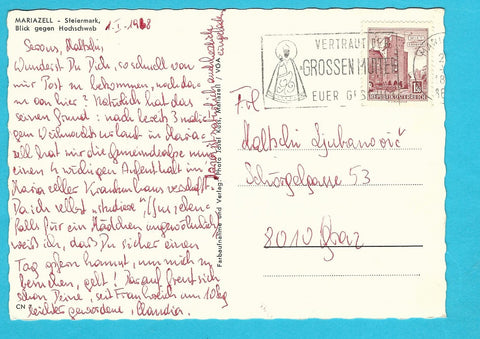 MARIAZELL - Steiermark,
Blick gegen Hochschwab
1. I. 1968
Servus, Maltschi!
Wunderst Du Dich, so schnell von
mir Post zu bekommen, noch da-
zu von hier? Natürlich hat das
seinen Grund: nach bereits 3 tägi-
gem Weihnachtsurlaub in Maria-
zell hat mir die Gemeindealpe
einen 4 wöchigen Aufenthalt im
Mariazeller Krankenhaus verschafft.
Da ich selbst studiere (jeden-
falls für ein Mädchen ungewöhnlich)
weiß ich, daß Du sicher einen
Tag opfern kannst, um mich zu
besuchen, gelt! Darauf freut sich
schon Deine, seit Frankreich um 10 kg
leichter gewordene, Claudia.
CN 7
Farbaufnahme und Verlag: Photo Josef Kuss, Mariazell / VDA
VERTRAUT DER
GROSSEN MUTTER
EUER
REPUBLIK ÖSTERREICH
Frl
Maltschi Ljubanović
Schörgelgasse 53
8010 Graz